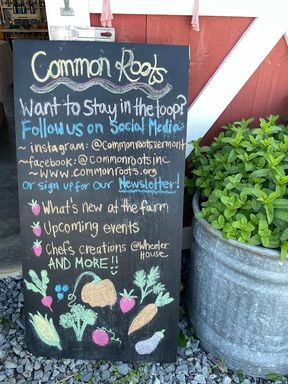 Common Roots
Want to stay in the loop?
Follow us on Social Media:
~ instagram: @Commonrootsvermont
~ facebook: @commonrootsinc
~ www.commonroots.org
or sign up for our Newsletter!
What's new at the farm
Upcoming events
Chef's creations @Wheeler House
AND MORE!!